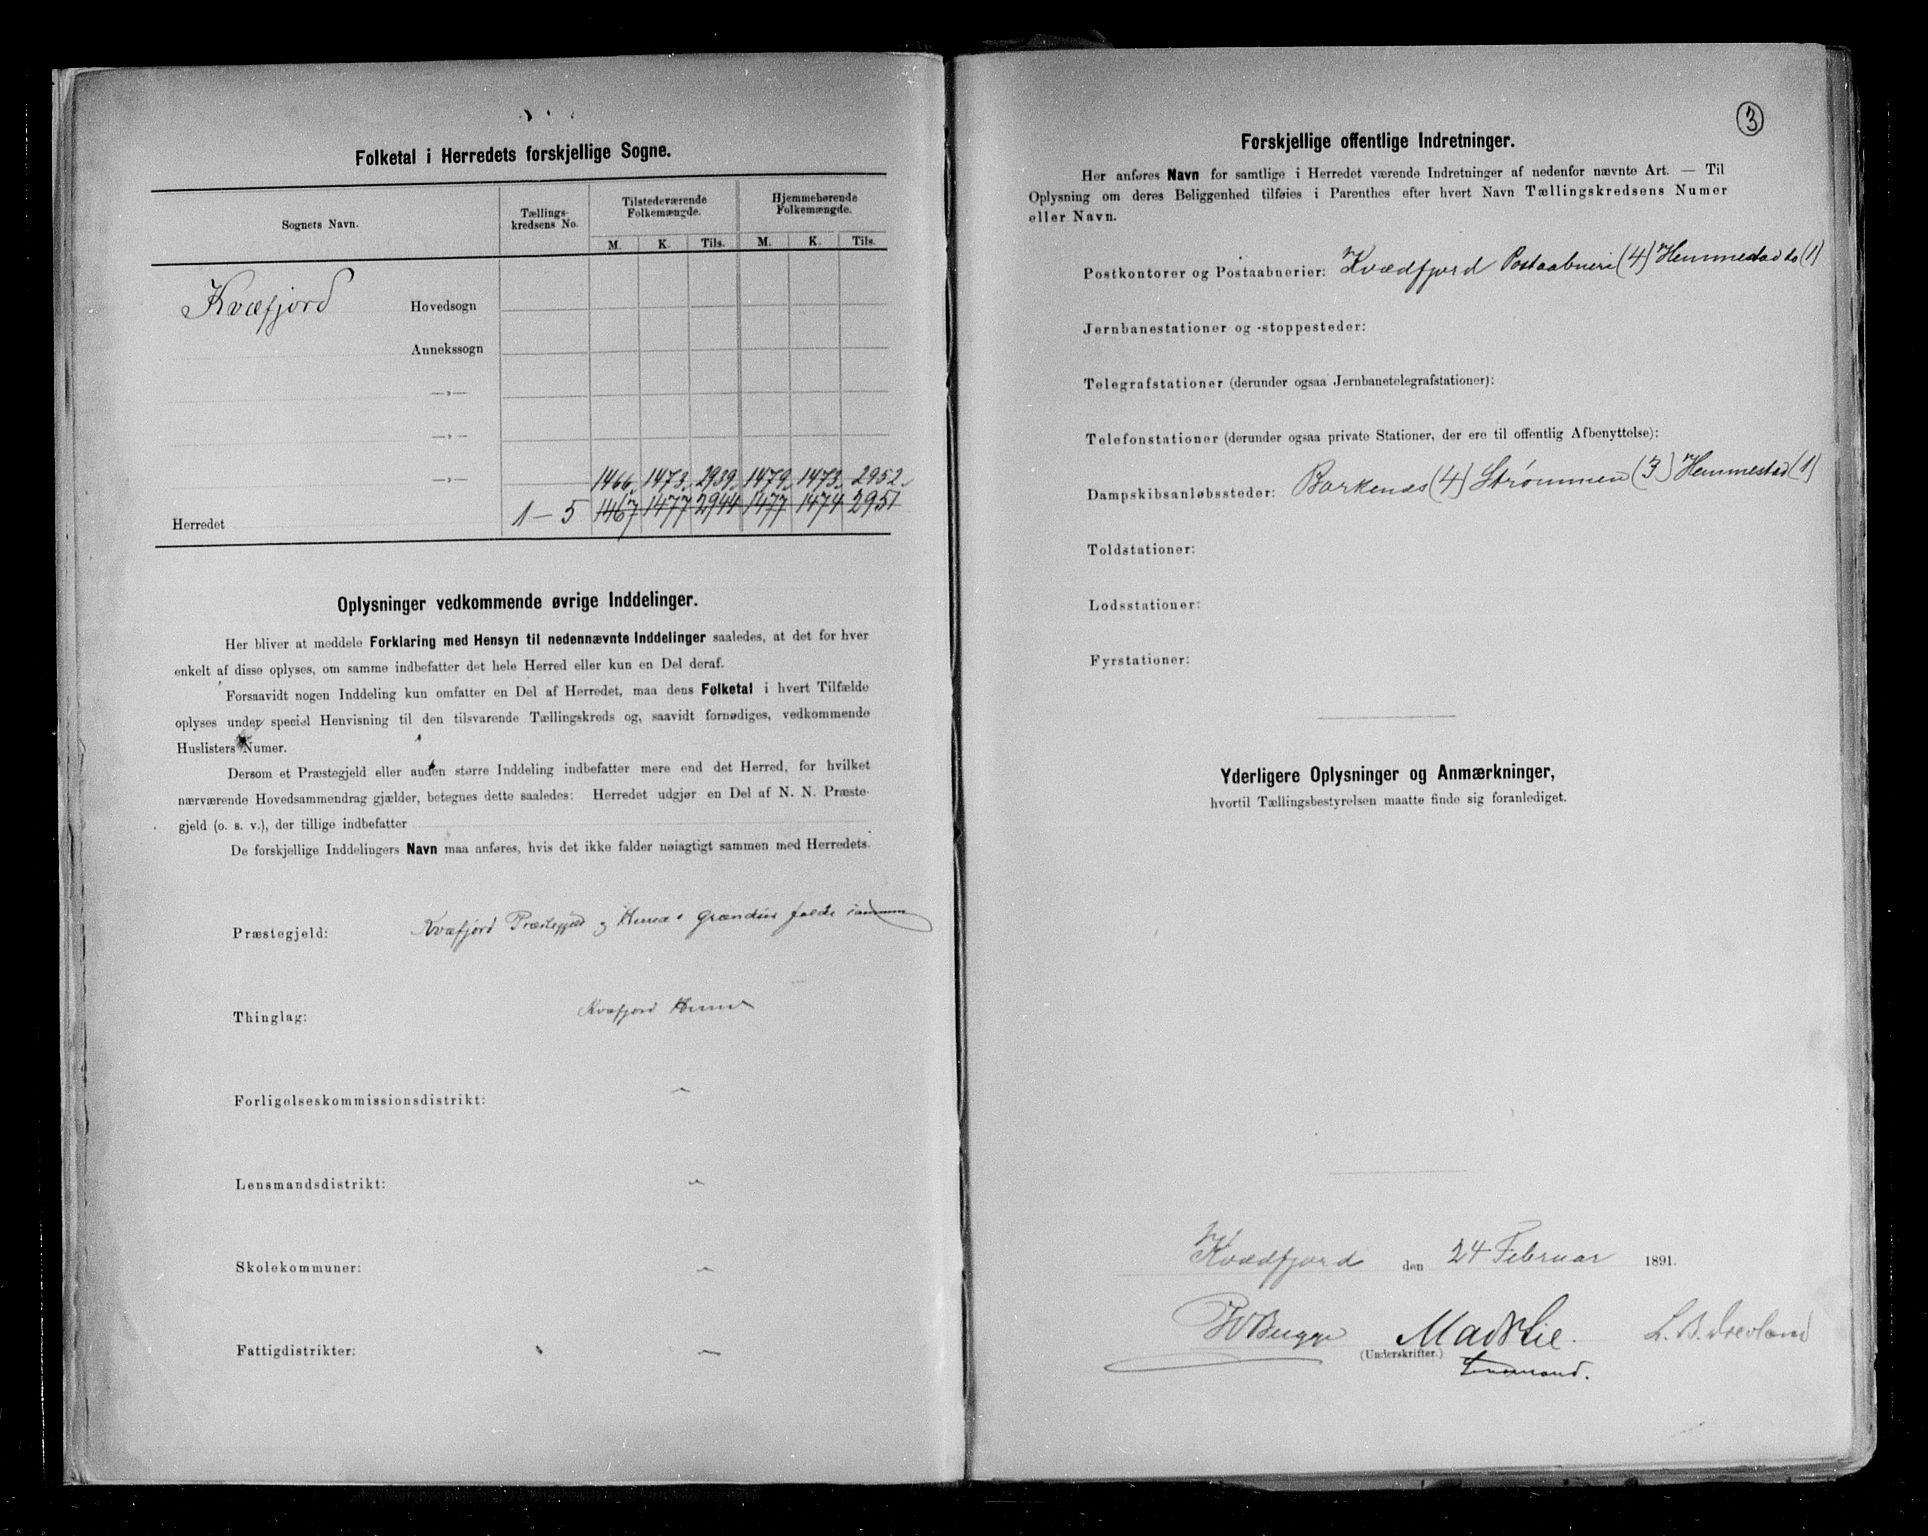 Folketal i Herredets forskjellige Sogne.
Sognets Navn.
Tællings-
kredsens No.
Tilstedeværende
Folkemængde.
Hjemmehørende
Folkemængde.
M. K. Tils. M. K. Tils.
Kvæfjord Hovedsogn
Annekssogn
—„—
—„—
—„—
1466. 1473. 2939. 1479. 1473. 2952.
Herredet 1–5 1467 1477 2944 1477 1474 2951
Oplysninger vedkommende øvrige Inddelinger.
Her bliver at meddele Forklaring med Hensyn til nedennævnte Inddelinger saaledes, at det for hver
enkelt af disse oplyses, om samme indbefatter det hele Herred eller kun en Del deraf.
Forsaavidt nogen Inddeling kun omfatter en Del af Herredet, maa dens Folketal i hvert Tilfælde
oplyses under speciel Henvisning til den tilsvarende Tællingskreds og, saavidt fornødiges, vedkommende
Huslisters Numer.
Dersom et Præstegjeld eller anden større Inddeling indbefatter mere end det Herred, for hvilket
nærværende Hovedsammendrag gjælder, betegnes dette saaledes: Herredet udgjør en Del af N. N. Præste-
gjeld (o. s. v.), der tillige indbefatter
De forskjellige Inddelingers Navn maa anføres, hvis det ikke falder nøiagtigt sammen med Herredets.
Præstegjeld: Kvæfjord Præstegjeld og Herreds Grændser falde sammen
Thinglag: Kvæfjord Herred
Forligelseskommissionsdistrikt: „
Lensmandsdistrikt: „
Skolekommuner: „
Fattigdistrikter: „
3
Forskjellige offentlige Indretninger.
Her anføres Navn for samtlige i Herredet værende Indretninger af nedenfor nævnte Art. — Til
Oplysning om deres Beliggenhed tilføies i Parenthes efter hvert Navn Tællingskredsens Numer
eller Navn.
Postkontorer og Postaabnerier: Kvædfjord Postaabneri (4) Hemmestad do (1)
Jernbanestationer og -stoppesteder:
Telegrafstationer (derunder ogsaa Jernbanetelegrafstationer):
Telefonstationer (derunder ogsaa private Stationer, der ere til offentlig Afbenyttelse):
Dampskibsanløbssteder: Borkenæs (4) Strømmen (3) Hemmestad (1)
Toldstationer:
Lodsstationer:
Fyrstationer:
Yderligere Oplysninger og Anmærkninger,
hvortil Tællingsbestyrelsen maatte finde sig foranlediget.
Kvædfjord den 24 Februar 1891.
Bugge Mads Lie. L. B.
(Underskrifter.)
Lensmand.